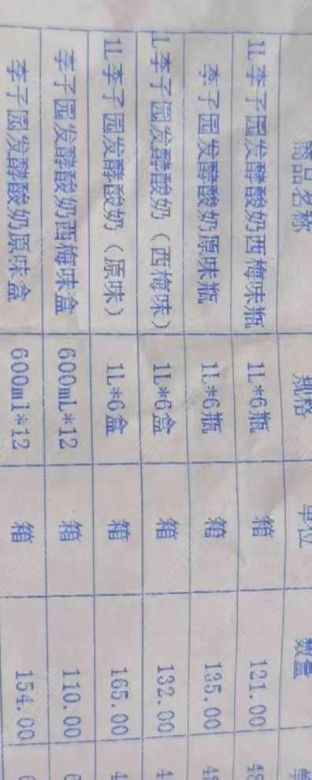 商品名称 规格 单位 数量
1L李子园发酵酸奶西梅味瓶 1L*6瓶 箱 121.00
李子园发酵酸奶原味瓶 1L*6瓶 箱 135.00
1L李子园发酵酸奶（西梅味） 1L*6盒 箱 132.00
1L李子园发酵酸奶（原味） 1L*6盒 箱 165.00
李子园发酵酸奶西梅味盒 600mL*12 箱 110.00
李子园发酵酸奶原味盒 600ml*12 箱 154.00